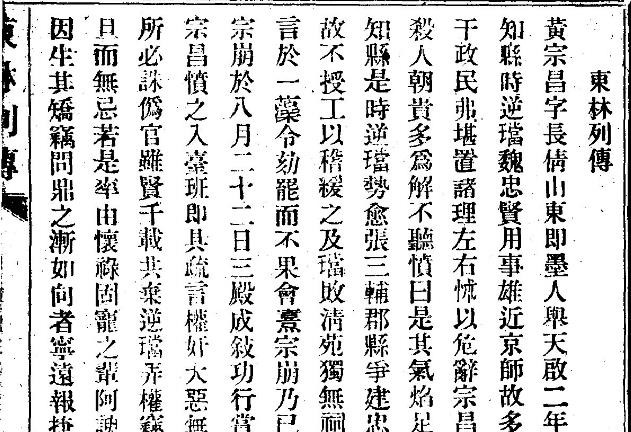 東林列傳
黃宗昌字長倩山東即墨人舉天啟二年
知縣時逆璫魏忠賢用事雄近京師故多
干政民弗堪置諸理左右怵以危辭宗昌
殺人朝貴多爲解不聽憤曰是其氣焰足
知縣是時逆璫勢愈張三輔郡縣爭建忠
故不授工以稽緩之及璫敗淸苑獨無祠
言於一藻令劾罷而不果會熹宗崩乃已
宗崩於八月二十二日三殿成敍功行賞
宗昌憤之入臺班即具疏言權奸大惡無
所必誅僞官雖賢千載共棄逆璫弄權竊
且而無忌若是率由懷祿固寵之輩阿諛
因生其矯竊問鼎之漸如向者寧遠報捷
東林列傳